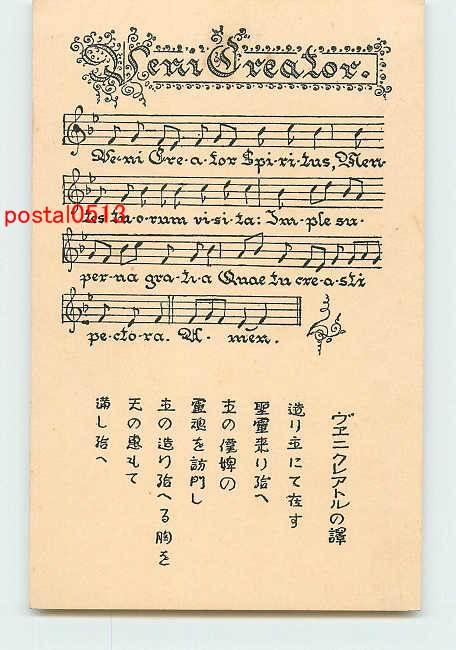 Veni Creator.
Ve-ni Cre-a-tor Spi-ri-tus, Men-
tes tu-o-rum vi-si-ta: Im-ple su-
postal0513
per-na gra-ti-a Quae tu cre-a-sti
pec-to-ra. A-men.
ヴエニクレアトルの譯
造り主にて在す
聖靈来り給へ
主の僕婢の
靈魂を訪問し
主の造り給へる胸を
天の恵もて
満し給へ